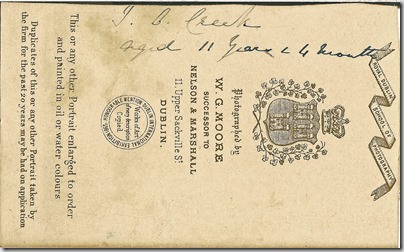 J. C. Creek
aged 11 Years & 4 months
ROYAL DUBLIN
SCHOOL OF
PHOTOGRAPHY
Photographed by
W. G. MOORE
SUCCESSOR TO
NELSON & MARSHALL
11 Upper Sackville St
DUBLIN.
HONORABLE MENTION DUBLIN INTERNATIONAL EXHIBITION
Works of Art
Copied
This or any other Portrait enlarged to order
and painted in oil or water colours
Duplicates of this or any other Portrait taken by
the firm for the past 20 years may be had on application